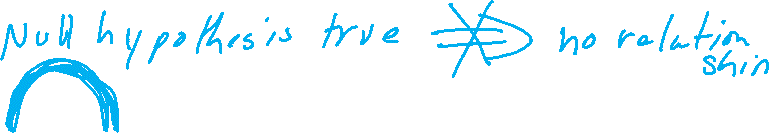 Null hypothesis true ⇏ no relation
ship